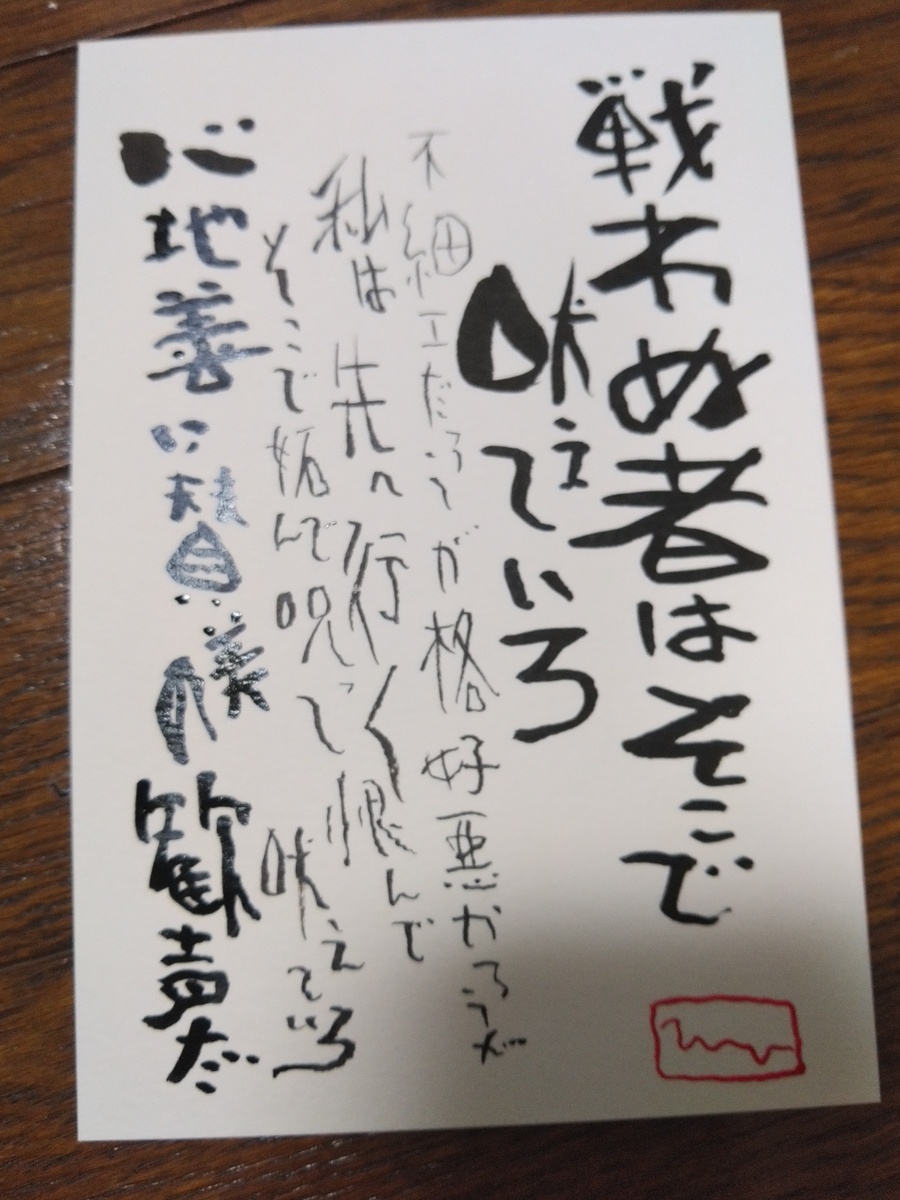 戦わぬ者はそこで
吠えていろ
不細工だろうが格好悪かろうが
私は先へ行く恨んで
そこで妬んで呪って吠えていろ
心地善い賛歓声だ